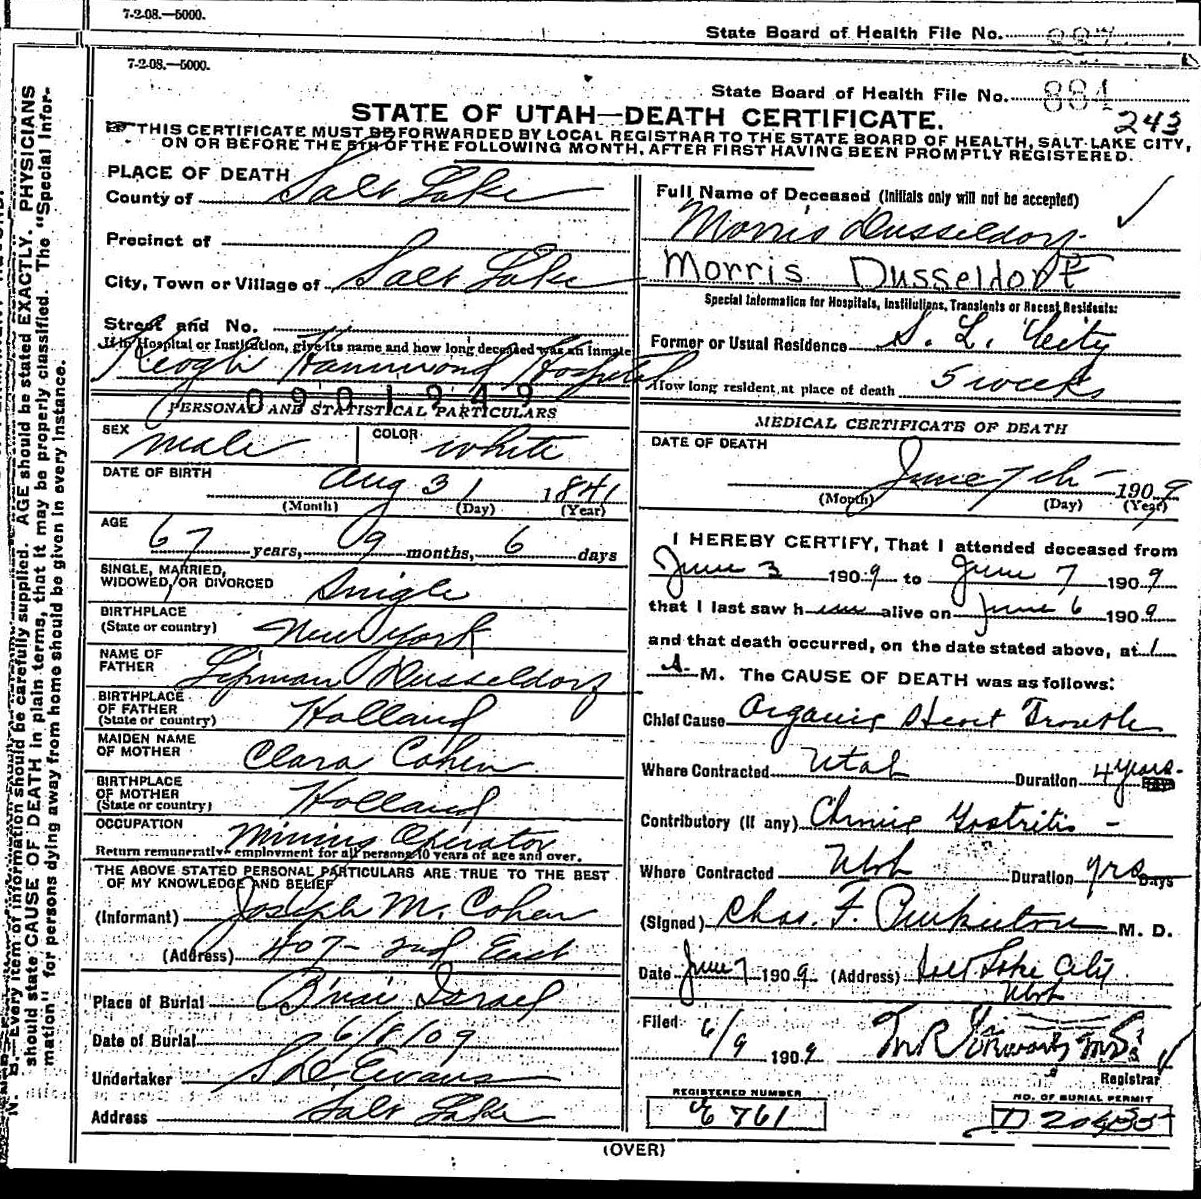 7-2-08.—5000.
State Board of Health File No. 887
7-2-08.—5000.
State Board of Health File No. 884
243
STATE OF UTAH—DEATH CERTIFICATE.
THIS CERTIFICATE MUST BE FORWARDED BY LOCAL REGISTRAR TO THE STATE BOARD OF HEALTH, SALT LAKE CITY,
ON OR BEFORE THE 5TH OF THE FOLLOWING MONTH, AFTER FIRST HAVING BEEN PROMPTLY REGISTERED.
PLACE OF DEATH
County of Salt Lake
Precinct of
City, Town or Village of Salt Lake
Street and No.
If in Hospital or Institution, give its name and how long deceased was an inmate
Keogh Hammond Hospital
0901949
PERSONAL AND STATISTICAL PARTICULARS
SEX male COLOR white
DATE OF BIRTH Aug 31 1841
(Month) (Day) (Year)
AGE 67 years, 09 months, 6 days
SINGLE, MARRIED, WIDOWED, OR DIVORCED Single
BIRTHPLACE (State or country) New York
NAME OF FATHER Lipman Dusseldorf
BIRTHPLACE OF FATHER (State or country) Holland
MAIDEN NAME OF MOTHER Clara Cohen
BIRTHPLACE OF MOTHER (State or country) Holland
OCCUPATION Mining Operator
Return remunerative employment for all persons 10 years of age and over.
THE ABOVE STATED PERSONAL PARTICULARS ARE TRUE TO THE BEST
OF MY KNOWLEDGE AND BELIEF
(Informant) Joseph M. Cohen
(Address) 407- 2nd East
Place of Burial B'nai Israel
Date of Burial 6/8/09
Undertaker Evans
Address Salt Lake
Full Name of Deceased (Initials only will not be accepted)
Morris Dusseldorf
Morris Dusseldorf
Special Information for Hospitals, Institutions, Transients or Recent Residents:
Former or Usual Residence S. L. City
How long resident at place of death 5 weeks
MEDICAL CERTIFICATE OF DEATH
DATE OF DEATH June 7th 1909
(Month) (Day) (Year)
I HEREBY CERTIFY, That I attended deceased from
June 3 1909 to June 7 1909
that I last saw him alive on June 6 1909
and that death occurred, on the date stated above, at 1
A M. The CAUSE OF DEATH was as follows:
Chief Cause Organic Heart Trouble
Where Contracted Utah Duration 4 years
Contributory (if any) Chronic Gastritis -
Where Contracted Utah Duration yrs Days
(Signed) Chas. F. M. D.
Date June 7 1909 (Address) Salt Lake City
Utah
Filed 6/9 1909
Registrar
REGISTERED NUMBER
761
NO. OF BURIAL PERMIT
(OVER)
N. B.—Every item of information should be carefully supplied. AGE should be stated EXACTLY. PHYSICIANS
should state CAUSE OF DEATH in plain terms, that it may be properly classified. The "Special Infor-
mation" for persons dying away from home should be given in every instance.